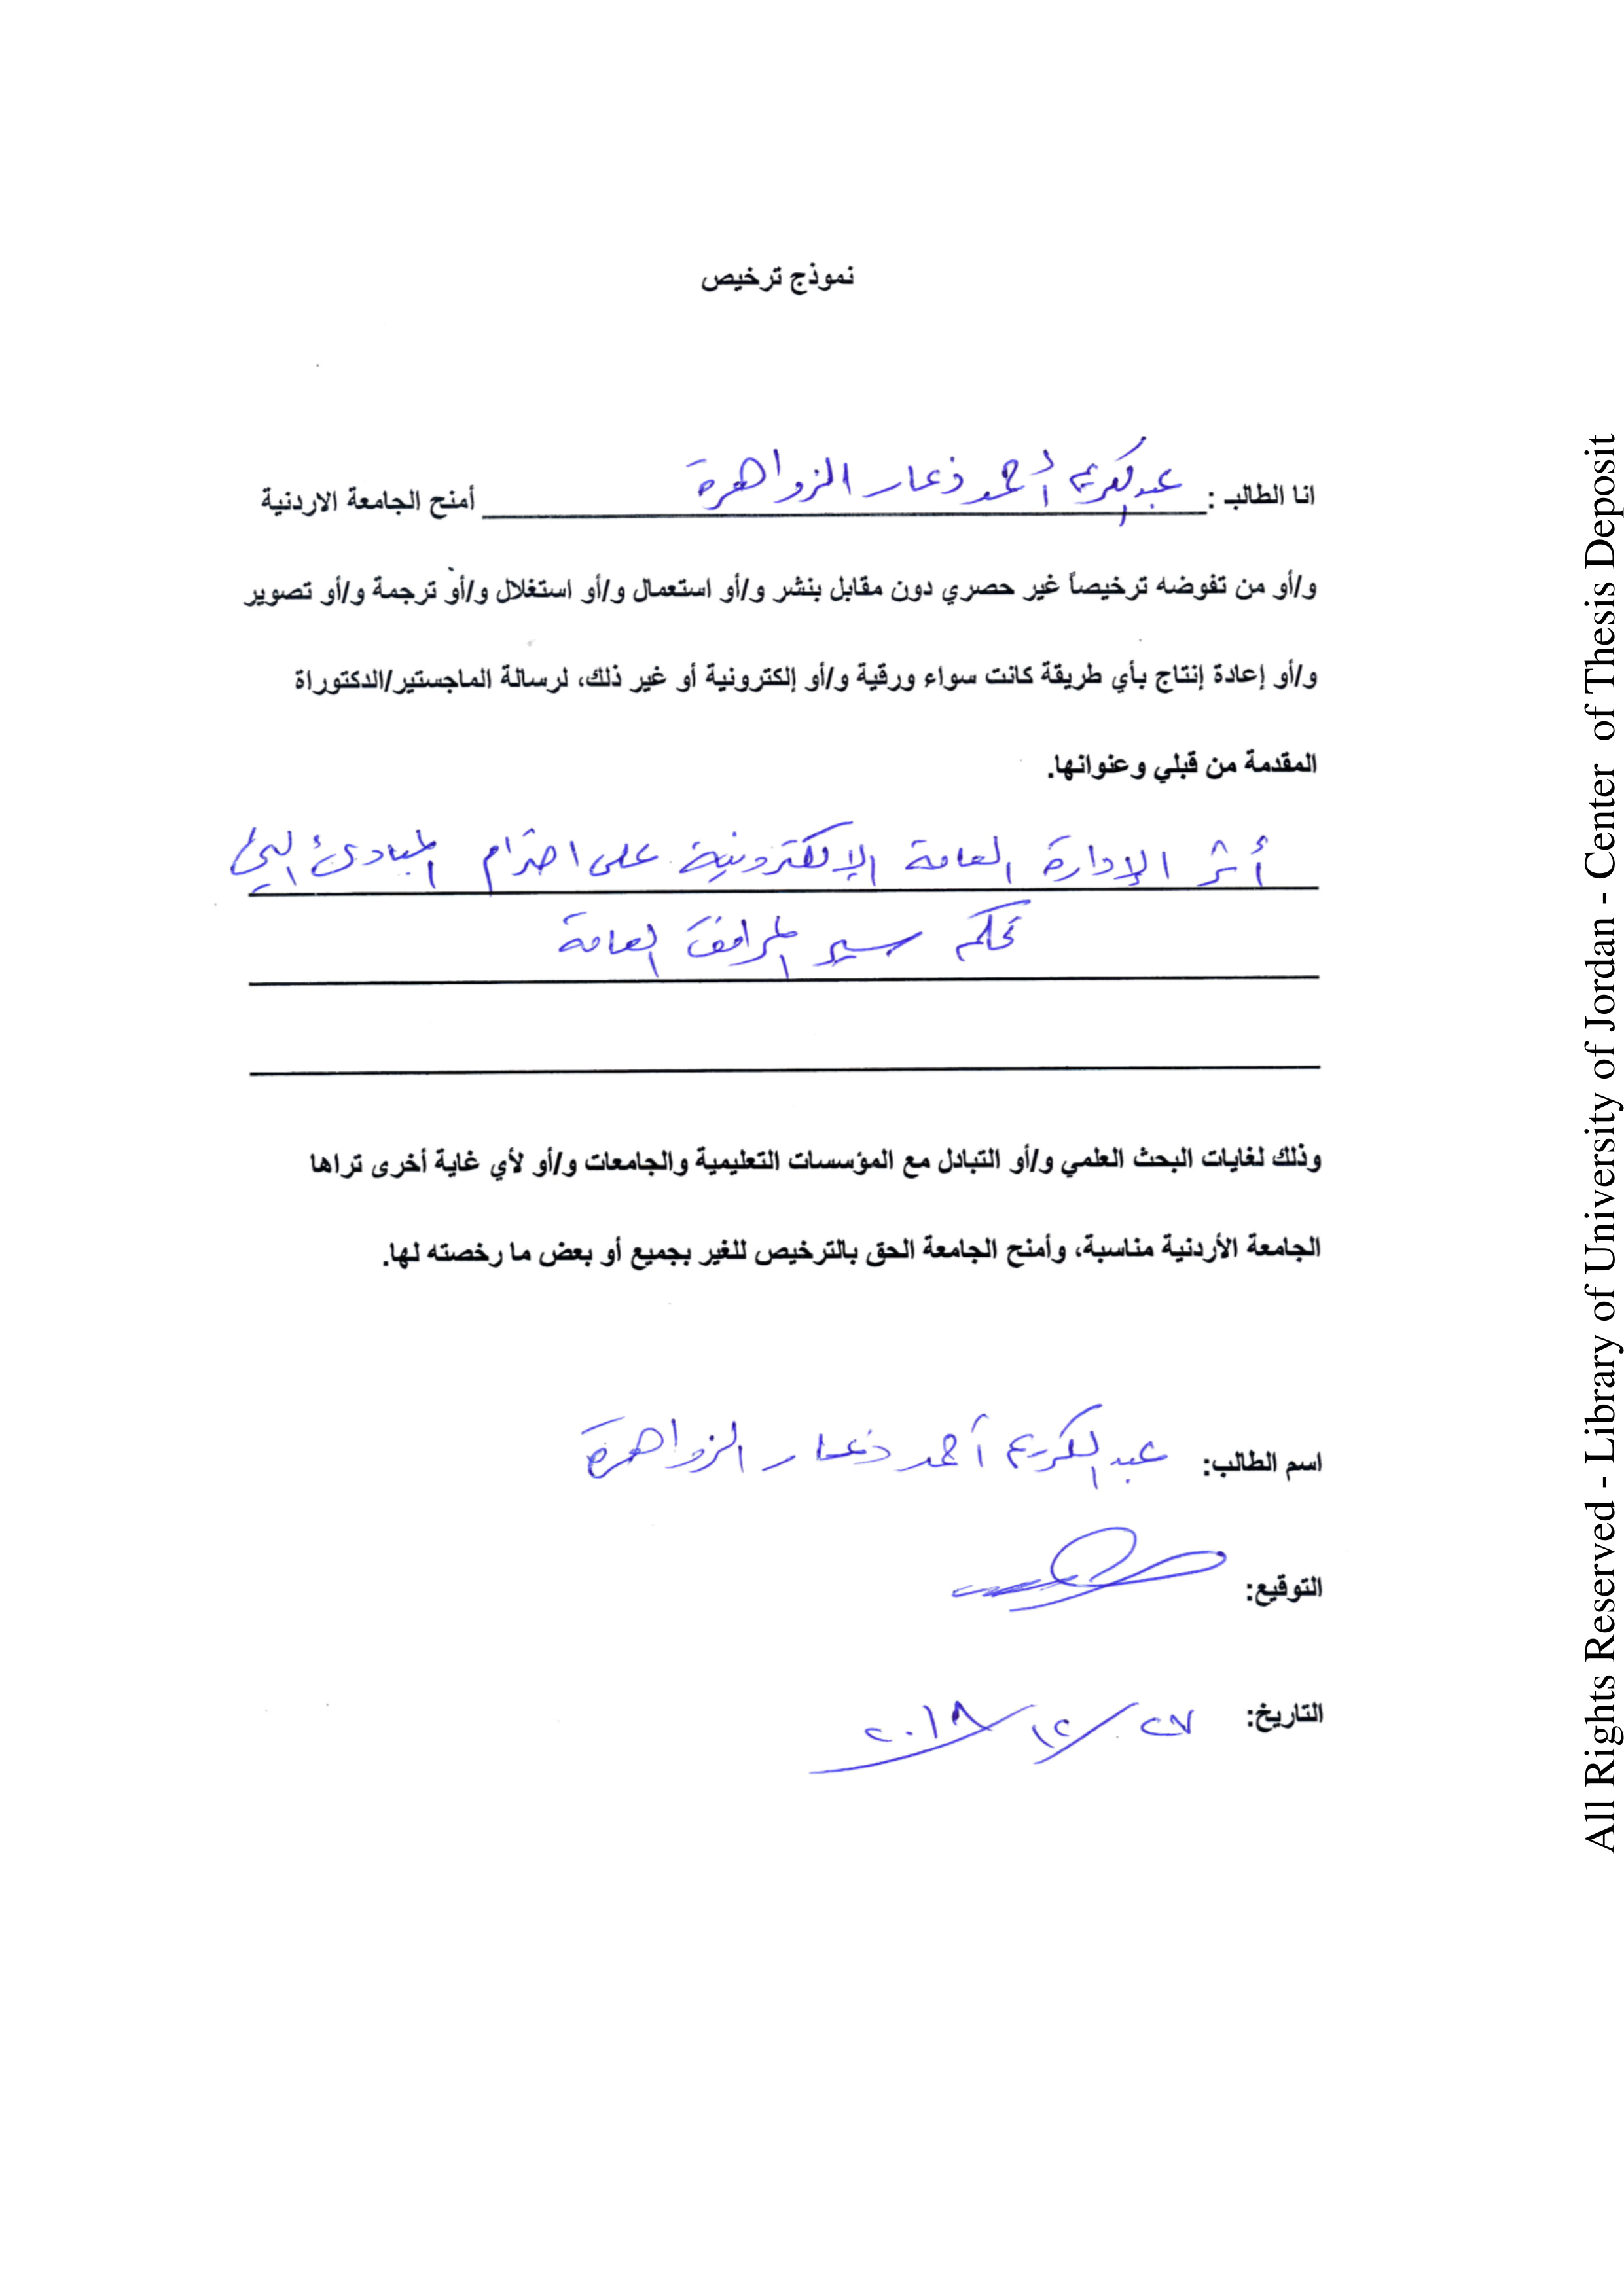 نموذج ترخيص
انا الطالب : عبدالكريم أحمد ذعار الزواهرة أمنح الجامعة الاردنية
و/أو من تفوضه ترخيصاً غير حصري دون مقابل بنشر و/أو استعمال و/أو استغلال و/أو ترجمة و/أو تصوير
و/أو إعادة إنتاج بأي طريقة كانت سواء ورقية و/أو إلكترونية أو غير ذلك، لرسالة الماجستير/الدكتوراة
المقدمة من قبلي وعنوانها.
أثر الإدارة العامة الإلكترونية على احترام المبادئ التي
تحكم سير المرافق العامة
وذلك لغايات البحث العلمي و/أو التبادل مع المؤسسات التعليمية والجامعات و/أو لأي غاية أخرى تراها
الجامعة الأردنية مناسبة، وأمنح الجامعة الحق بالترخيص للغير بجميع أو بعض ما رخصته لها.
اسم الطالب: عبد الكريم أحمد ذعار الزواهرة
التوقيع:
التاريخ: ٢٧/١٢/٢٠١٨
All Rights Reserved - Library of University of Jordan - Center of Thesis Deposit